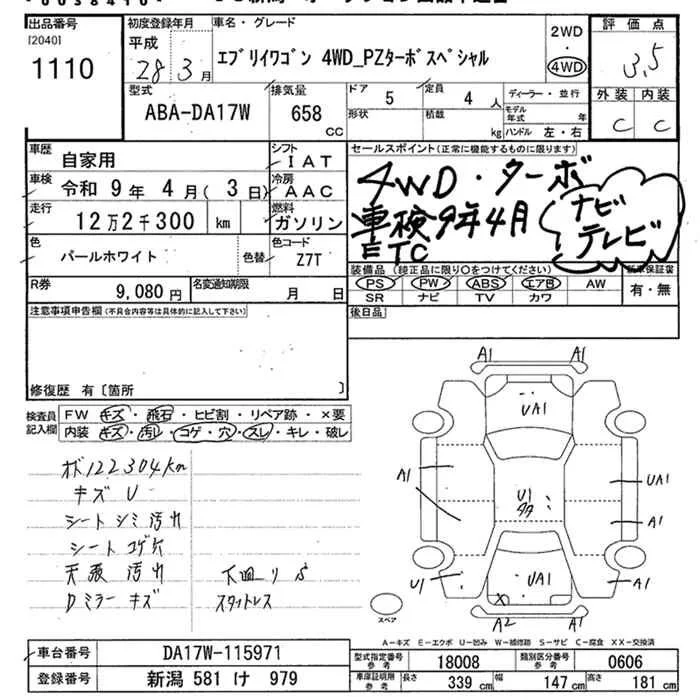 出品番号
[2040]
1110
初度登録年月
平成
28年 3月
車名・グレード
エブリイワゴン 4WD_PZターボスペシャル
2WD
・
4WD
評価点
3.5
外装 内装
C C
型式
ABA-DA17W
排気量
658
CC
ドア 5
形状
定員 4 人
積載 kg
ディーラー・並行
モデル年式 年
ハンドル 左・右
車歴 自家用
シフト
IAT
車検 令和 9年 4月( 3日)
冷房
AAC
走行 12万2千300 km
燃料
ガソリン
色 パールホワイト
色替
色コード
Z7T
R券 9,080円
名変通知期限 月 日
セールスポイント(正常に機能するものに限ります)
4WD・ターボ
車検9年4月
ETC
ナビ
テレビ
装備品(純正品に限り○をつけてください)
新車保証書
PS PW ABS エアB AW
SR ナビ TV カワ
有・無
後日品
注意事項申告欄(不具合内容等は具体的に記入して下さい)
修復歴 有〔箇所 〕
検査員記入欄
FW キズ・飛石・ヒビ割・リペア跡・×要
内装 キズ・汚レ・コゲ・穴・スレ・キレ・破レ
メ122304km
キズ U
シート シミ 汚れ
シート コゲ穴
天張 汚れ
Dミラー キズ
下回り S
スタットレス
A1 A1
UA1
A1
UA1
U1
A1
U1
UA1
A1
X
A2 A1
スペア
A-キズ E-エクボ U-凹み W-補修跡 S-サビ C-腐食 XX-交換済
車台番号 DA17W-115971
登録番号 新潟 581 け 979
型式指定番号 参考 18008
類別区分番号 参考 0606
車庫証明用 参考 長さ 339 cm 幅 147 cm 高さ 181 cm